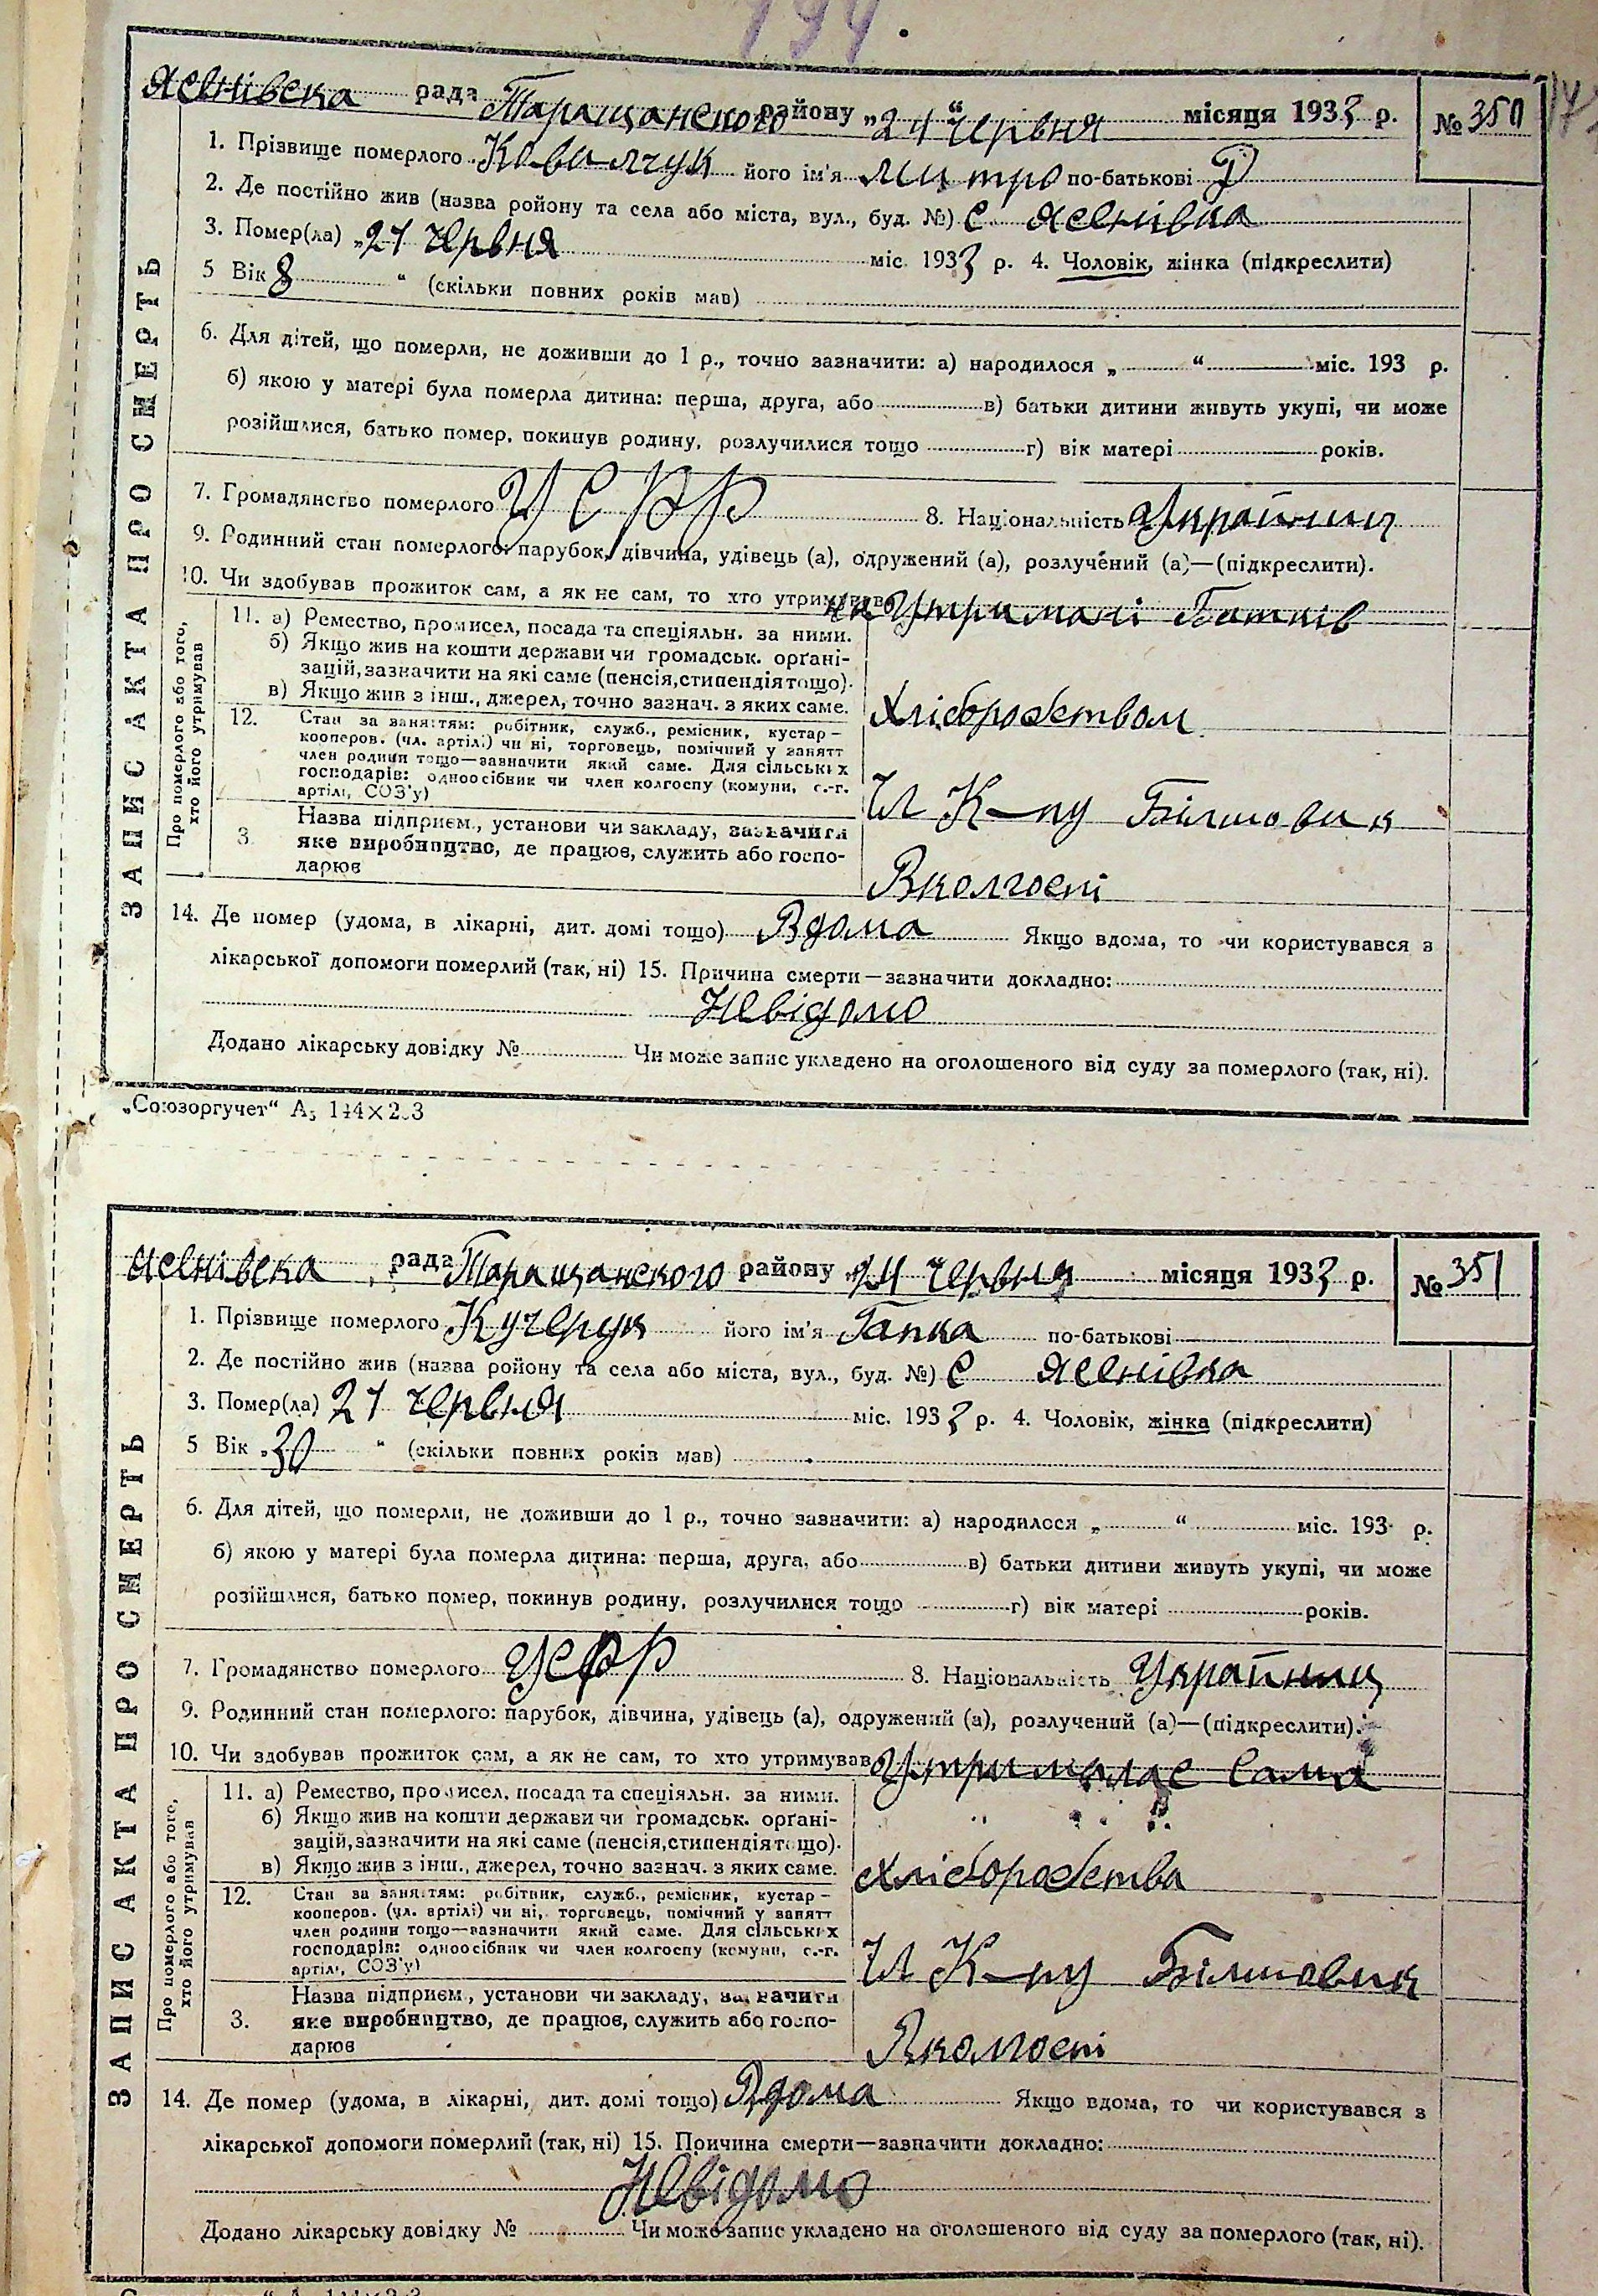 194.
Яснівська рада Таращанского району „24“ червня місяця 1933 р. № 350
1. Прізвище померлого Ковальчук його ім'я Митро по-батькові
2. Де постійно жив (назва ройону та села або міста, вул., буд. №) с Яснівка
3. Помер(ла) „21 червня міс. 1933 р. 4. Чоловік, жінка (підкреслити)
5 Вік 8 “ (скільки повних років мав)
6. Для дітей, що померли, не доживши до 1 р., точно зазначити: а) народилося „ “ міс. 193 р.
б) якою у матері була померла дитина: перша, друга, або в) батьки дитини живуть укупі, чи може
розійшлися, батько помер, покинув родину, розлучилися тощо г) вік матері років.
7. Громадянство померлого УСРР 8. Національність Україниц
9. Родинний стан померлого: парубок, дівчина, удівець (а), одружений (а), розлучений (а)—(підкреслити).
10. Чи здобував прожиток сам, а як не сам, то хто утримував на Утримані Батків
11. а) Ремество, промисел, посада та спеціяльн. за ними.
б) Якщо жив на кошти держави чи громадськ. орґані-
зацій, зазначити на які саме (пенсія, стипендія тощо).
в) Якщо жив з інш., джерел, точно зазнач. з яких саме. Хлібробством
12. Стан за заняттям: робітник, служб., ремісник, кустар –
кооперов. (чл. артілі) чи ні, торговець, помічний у занятт
член родини тощо—зазначити який саме. Для сільських
господарів: одноосібник чи член колгоспу (комуни, с.-г.
артілі, СОЗ'у) Чл К-пу Більшовик
3. Назва підприєм., установи чи закладу, зазначити
яке виробництво, де працює, служить або госпо-
дарює Вколгоспі
Про померлого або того,
хто його утримував
14. Де помер (удома, в лікарні, дит. домі тощо) Вдома Якщо вдома, то чи користувався з
лікарської допомоги померлий (так, ні) 15. Причина смерти—зазначити докладно:
Невідомо
Додано лікарську довідку № Чи може запис укладено на оголошеного від суду за померлого (так, ні).
ЗАПИС АКТА ПРО СМЕРТЬ
„Союзоргучет“ А5 144×203
Яснівська рада Таращанского району „24 червня місяця 1933 р. № 351
1. Прізвище померлого Кучерук його ім'я Гапка по-батькові
2. Де постійно жив (назва ройону та села або міста, вул., буд. №) с Яснівка
3. Помер(ла) 21 червня міс. 1933 р. 4. Чоловік, жінка (підкреслити)
5 Вік „30 “ (скільки повних років мав)
6. Для дітей, що померли, не доживши до 1 р., точно зазначити: а) народилося „ “ міс. 193 р.
б) якою у матері була померла дитина: перша, друга, або в) батьки дитини живуть укупі, чи може
розійшлися, батько помер, покинув родину, розлучилися тощо г) вік матері років.
7. Громадянство померлого УСРР 8. Національність Україниц
9. Родинний стан померлого: парубок, дівчина, удівець (а), одружений (а), розлучений (а)—(підкреслити).
10. Чи здобував прожиток сам, а як не сам, то хто утримував Утрималас Сама
11. а) Ремество, промисел, посада та спеціяльн. за ними.
б) Якщо жив на кошти держави чи громадськ. орґані-
зацій, зазначити на які саме (пенсія, стипендія тощо).
в) Якщо жив з інш., джерел, точно зазнач. з яких саме. Хлібробства
12. Стан за заняттям: робітник, служб., ремісник, кустар –
кооперов. (чл. артілі) чи ні, торговець, помічний у занятт
член родини тощо—зазначити який саме. Для сільських
господарів: одноосібник чи член колгоспу (комуни, с.-г.
артілі, СОЗ'у) Чл К-пу Більшовик
3. Назва підприєм., установи чи закладу, зазначити
яке виробництво, де працює, служить або госпо-
дарює Вколгоспі
Про померлого або того,
хто його утримував
14. Де помер (удома, в лікарні, дит. домі тощо) Вдома Якщо вдома, то чи користувався з
лікарської допомоги померлий (так, ні) 15. Причина смерти—зазначити докладно:
Невідомо
Додано лікарську довідку № Чи може запис укладено на оголошеного від суду за померлого (так, ні).
ЗАПИС АКТА ПРО СМЕРТЬ